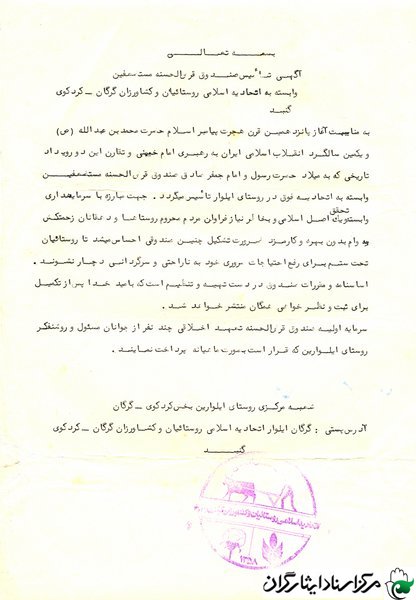 بسمه تعالی
آگهی تاسیس صندوق قرض الحسنه مستضعفین
وابسته به اتحادیه اسلامی روستائیان و کشاورزان گرگان ــ کردکوی
گنبد
به مناسبت آغاز پانزدهمین قرن هجرت پیامبر اسلام حضرت محمد بن عبدالله (ص)
و یکمین سالگرد انقلاب اسلامی ایران به رهبری امام خمینی و تقارن این دو رویداد
تاریخی که به میلاد حضرت رسول و امام جعفر صادق صندوق قرض الحسنه مستضعفین
وابسته به اتحادیه فوق در روستای ایلوار تاسیس میگردد. جهت مبارزه با سرمایه داری
وابسته و تحقق اصل اسلامی و بخاطر نیاز فراوان مردم محروم روستاها و دهقانان زحمتکش
به وام بدون بهره و کارمزد ضرورت تشکیل چنین صندوقی احساس میشد تا روستائیان
تحت ستم برای رفع احتیاجات ضروری خود به ناراحتی و سرگردانی دچار نشوند.
اساسنامه و مقررات صندوق در دست تهیه و تنظیم است که بامید خدا پس از تکمیل
برای ثبت و نظر خواهی همگان منتشر خواهد شد.
سرمایه اولیه صندوق قرض الحسنه تعهد اخلاقی چند نفر از جوانان مسئول و روشنفکر
روستای ایلوارین که قرار است بصورت ماهیانه پرداخت نمایند.
شعبه مرکزی روستای ایلوارین بخش کردکوی ــ گرگان
آدرس پستی : گرگان ایلوار اتحادیه اسلامی روستائیان و کشاورزان گرگان ــ کردکوی
گنبد
اتحادیه اسلامی روستائیان و کشاورزان
۱۳۵۸
مرکز اسناد ایثارگران